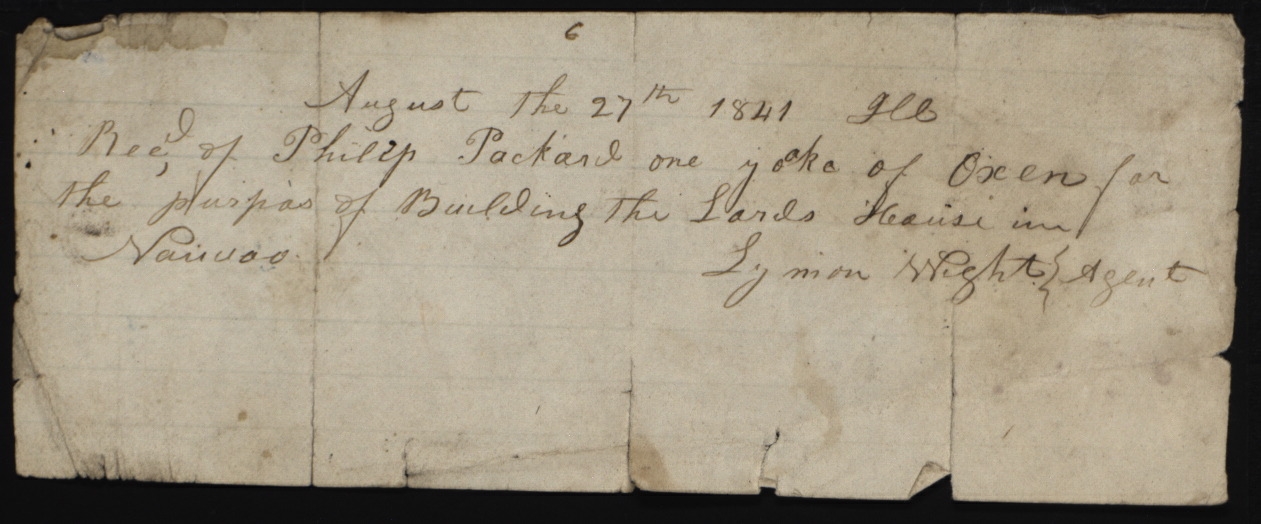 6
August the 27th 1841 Ill
Recd, of Philip Packard one yoke of Oxen for
the purpos of Building the Lords House in
Nauvoo
Lyman Wight } Agent